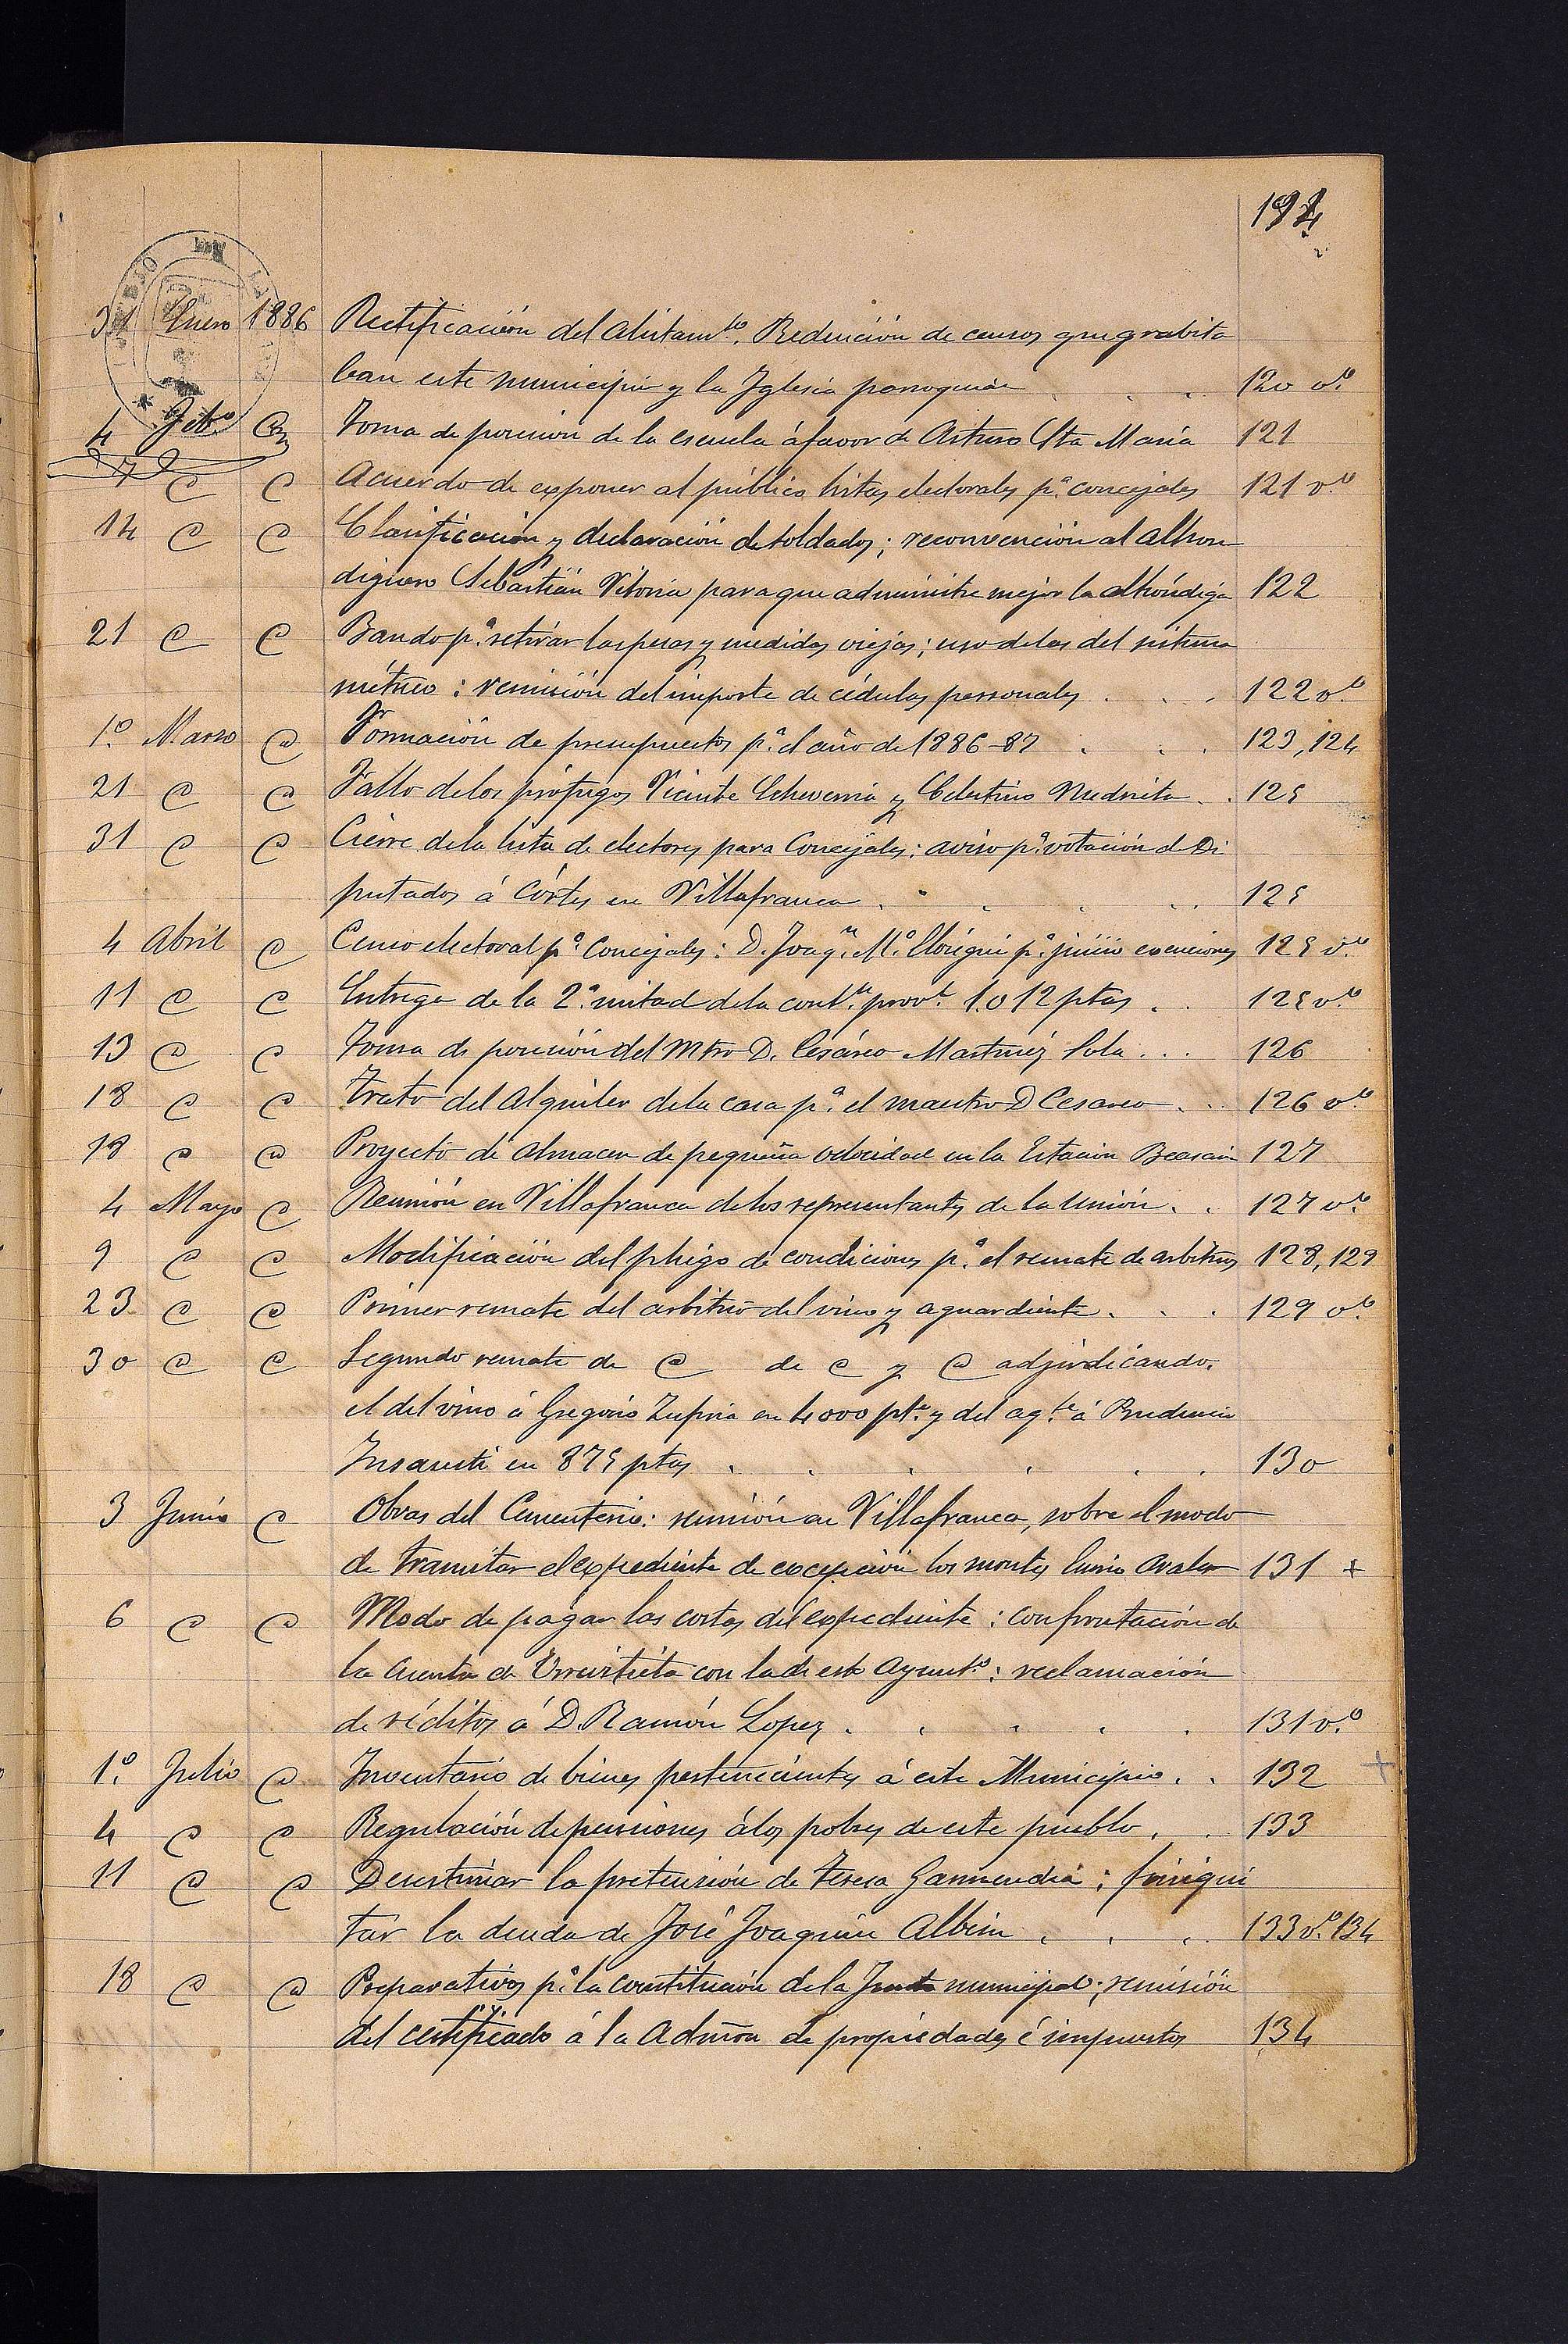 194
31 Enero 1886 Rectificación del alistamto. Redención de censos que grabita
ban este municipio y la Iglesia parroquial . . . 120 vto
4 Febo @ Toma de posesión de la escuela á favor de Arturo Sta María 121
7 @ @ Acuerdo de exponer al público listas electorales pa concejales 121 vto
14 @ @ Clasificación y declaración de soldados; reconvención al alhon
diguero Sebastián Vitoria para que administre mejor la alhóndiga 122
21 @ @ Bando pa retirar las pesas y medidas viejas; uso de las del sistema
métrico: remisión del importe de cédulas personales . . . 122 vto
1o Marzo @ Formación de presupuestos pa el año de 1886-87 . . . 123, 124
21 @ @ Fallo de los prófugos Vicente Echeverria y Celestino . . 125
31 @ @ Cierre de la lista de electores para Concejales: aviso pa votación de Di
putados á Córtes en Villafranca . . . . . 125
4 Abril @ Censo electoral pa Concejales: D. Joaqn Ma pa juicio exenciones 125 vto
11 @ @ Entrega de la 2a mitad de la contón provl 1.012 ptas . . 125 vto
13 @ @ Toma de posesión del Mtro D. Cesáreo Martinez Sola . . . 126
18 @ @ Trato del alquiler de la casa pa el maestro D Cesareo . . . 126 vto
18 @ @ Proyecto de almacen de pequeña velocidad en la Estacion Beasain 127
4 Mayo @ Reunión en Villafranca de los representantes de la Unión . . 127 vto
9 @ @ Modificación del pliego de condiciones pa el remate de arbitrios 128, 129
23 @ @ Primer remate del arbitrio del vino y aguardiente . . . 129 vto
30 @ @ Segundo remate de @ de @ y @ adjudicando.
el del vino á Gregorio Zufiria en 4000 pts y del agte á Prudencio
Insausti en 875 ptas . . . . . 130
3 Junio @ Obras del Cementerio: reunión en Villafranca, sobre el modo
de tramitar el expediente de excepción los montes 131 +
6 @ @ Modo de pagar las costas del expediente: confrontación de
la cuenta de Urrestieta con la de este Ayuntto: reclamación
de réditos á D. Ramón Lopez . . . . . 131 vto
1o Julio @ Inventario de bienes pertenecientes á este Municipio . . 132 +
4 @ @ Regulación de pensiones á los pobres de este pueblo . . 133
11 @ @ Desestimar la pretensión de Teresa Garmendia; finiqui
tar la deuda de José Joaquin Albisu . . . 133 vto 134
18 @ @ Preparativos pa la constitución de la Junta municipal; remisión
del certificado á la Admon de propiedades é impuestos 134